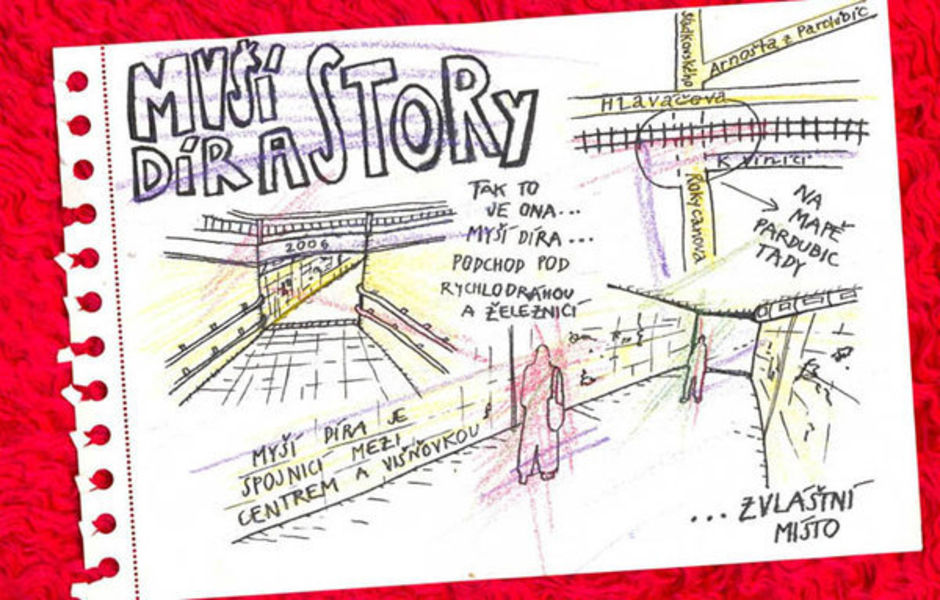 MYŠÍ
DÍRA STORY
Sladkovského
Arnošta z Pardubic
HLaváčova
K Vinici
Rokycanova
NA
MAPĚ
PARDUBIC
TADY
TAK TO
JE ONA...
MYŠÍ DÍRA...
PODCHOD POD
RYCHLODRÁHOU
A ŽELEZNICÍ
2006
MYŠÍ DÍRA JE
SPOJNICÍ MEZI
CENTREM A VIŠŇOVKOU
... ZVLÁŠTNÍ
MÍSTO